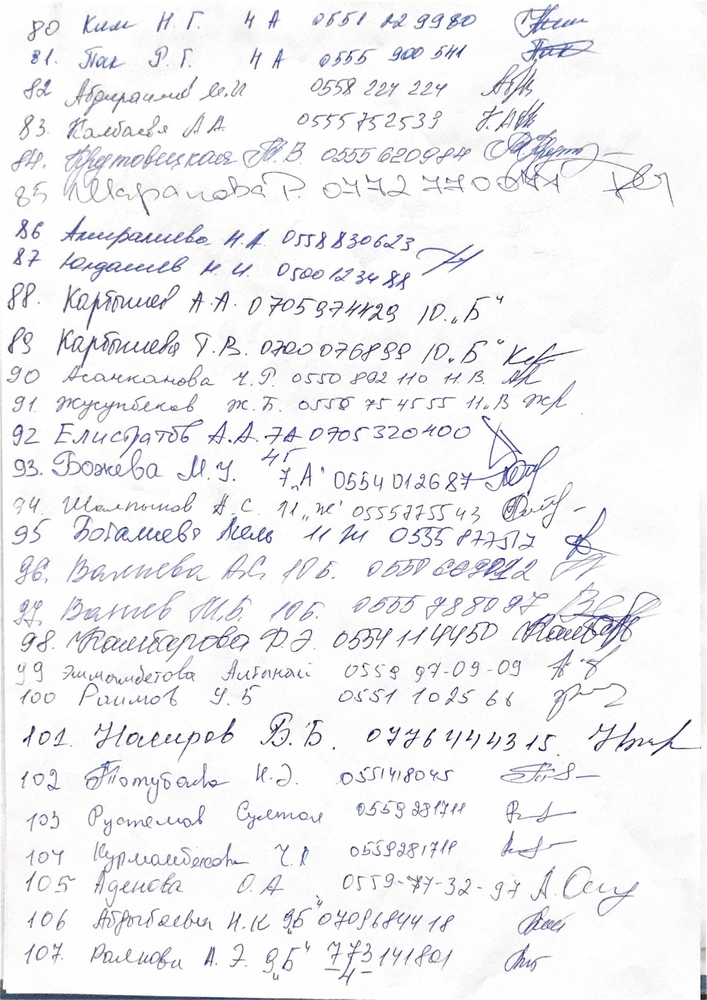 80 Ким Н. Г. 4 А 0551 229980
81. Пак Р. Г. 4 А 0555 900 541
82 Абдираимов М.И 0558 224 224
83. Калбаева А А 0555752533
84. Крутовецкая Т. В. 0555620984
85 Шарапова Р. 0772 770071
86 Амиралиева Н.А. 0558830623
87 Юлдашев Н. И. 0500123488
88. Картышев А. А. 0705974429 10 „Б"
89 Картышева Т. В. 0700076899 10 „Б"
90 Асанканова Ч. Р. 0550 892 110 11.В.
91. Жусупбеков Ж. Б. 0556 75 45 55 11„В
92 Елистратов А.А. 7А 0705320400
93. Божева М. У. 7„А" 0554012687
94. Шалпыков А. С. 11 „ж" 0555775543
95 Боталиева 11 Ж 0555877517
96. Валиева А.С. 10 Б.
97. Валиев М.Б. 10Б. 0555788097
98. Камбарова Ф. Э. 0554 114450
99 Эшмамбетова Алтынай 0559 97-09-09
100 Раимов У. Б 0551 1025 66
101. Насиров В. Б. 0776444315.
102 Н. Э. 0551418045
103 Рустемов Султан 0559281711
104 Курманбекова Ч. 0559281711
105 Аденова О. А 0559-77-32-97
106 Н. К 9„Б" 0709684418
107. А. Э. 9„Б" 773141801
-4-